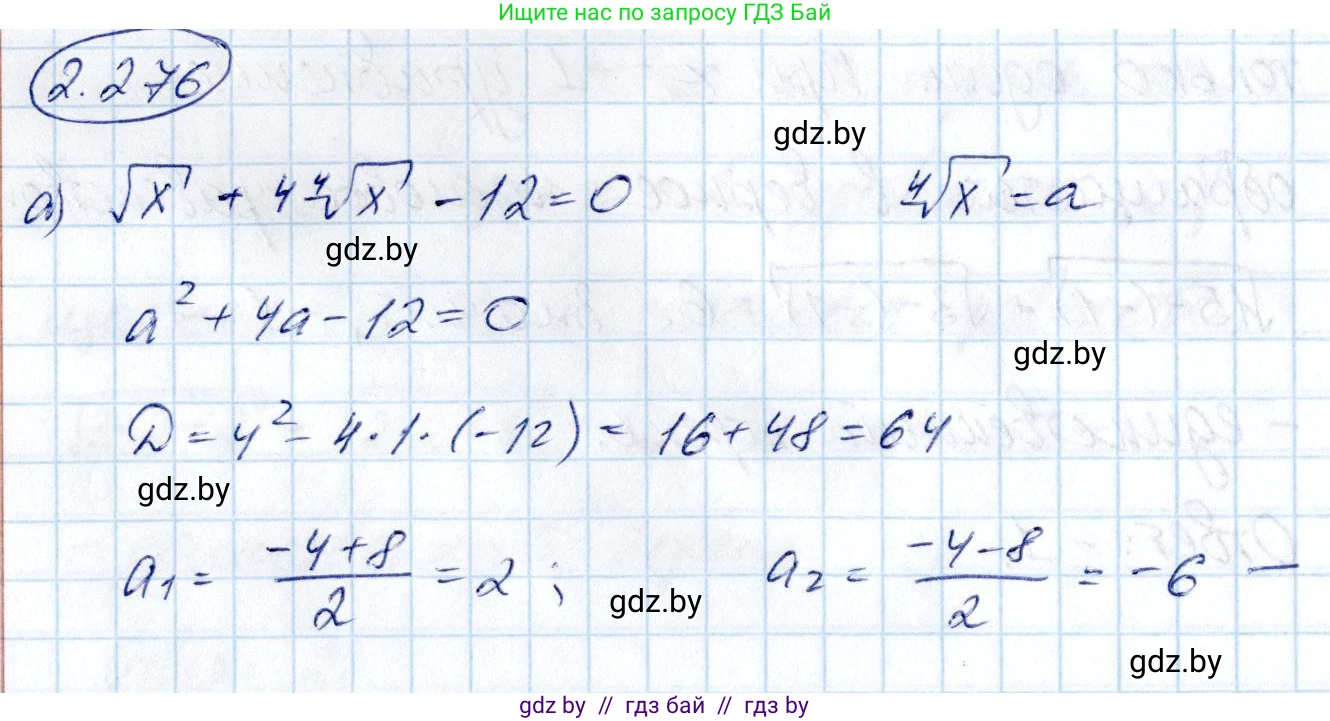 Ищите нас по запросу ГДЗ Бай
2.276
gdz.by
а) √x + 4 ∜x - 12 = 0    ∜x = a
gdz.by
a² + 4a - 12 = 0
gdz.by
D = 4² - 4·1·(-12) = 16 + 48 = 64
gdz.by
a₁ = (-4+8)/2 = 2 ;    a₂ = (-4-8)/2 = -6 —
gdz.by
gdz.by
gdz by // гдз бай // гдз by